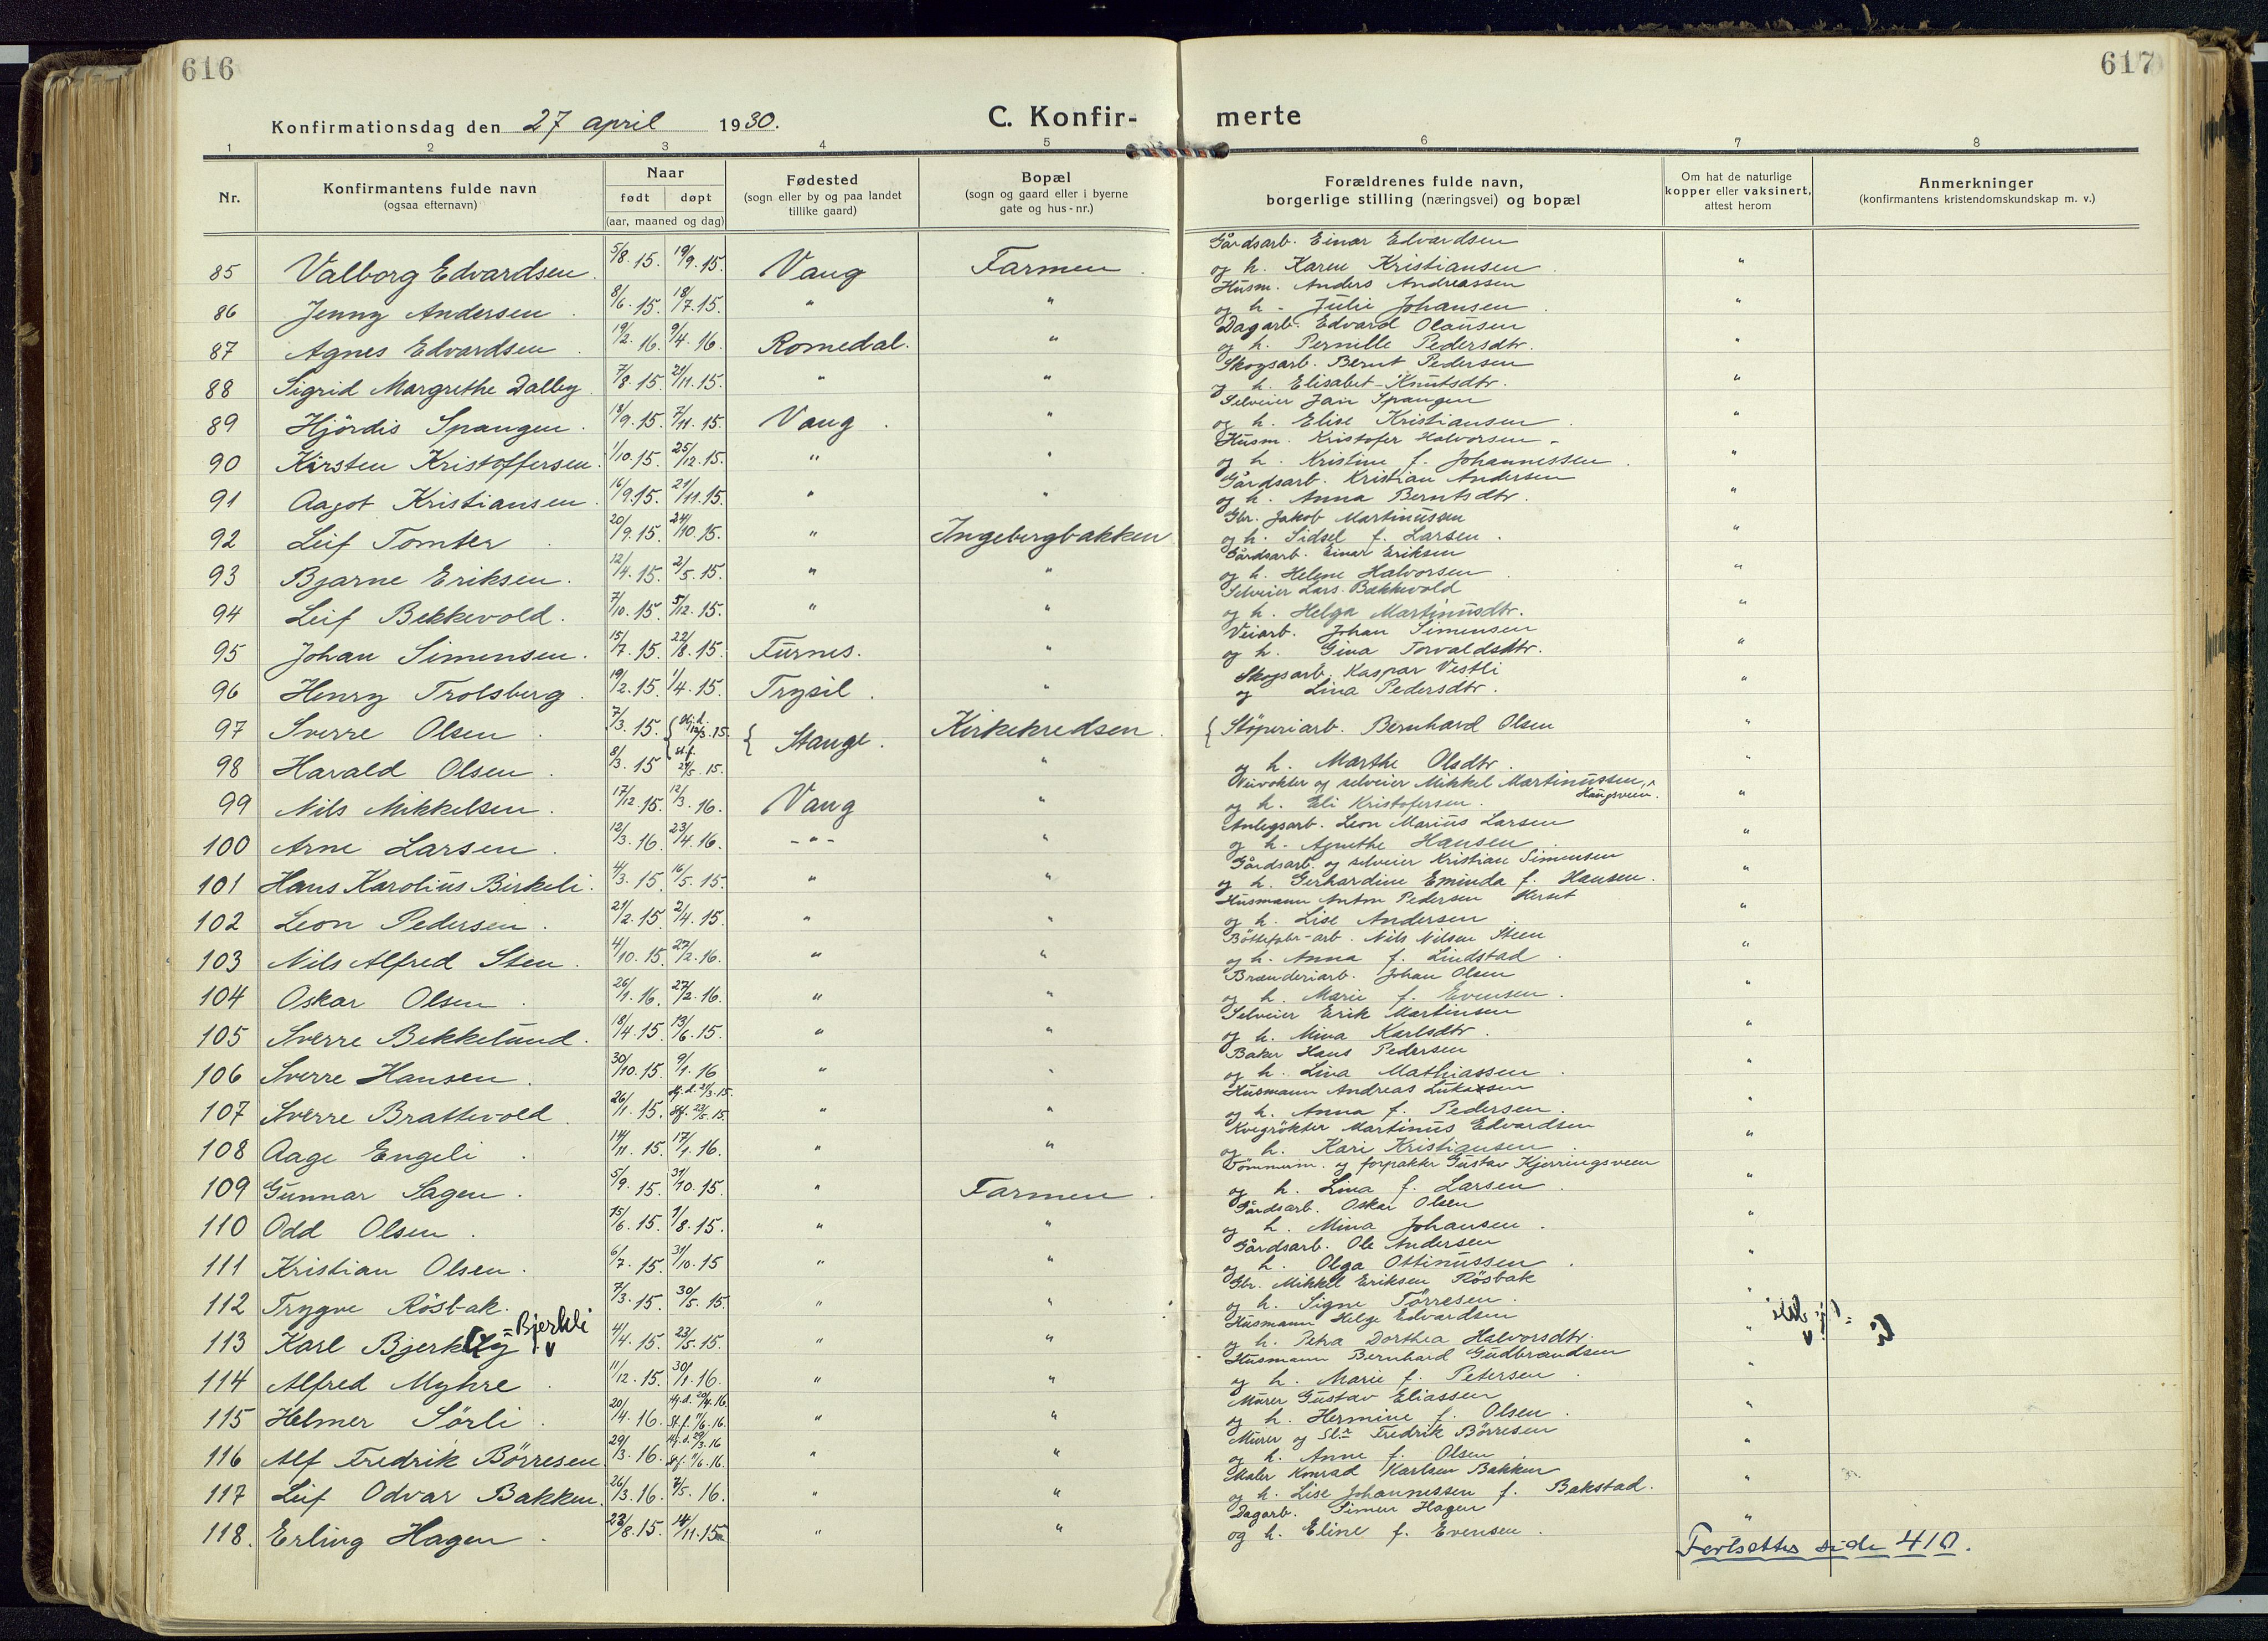 616
617
Konfirmationsdag den 27 april 1930.
C. Konfir-
merte
1 2 3 4 5 6 7 8
Nr.
Konfirmantens fulde navn
(ogsaa efternavn)
Naar
født døpt
(aar, maaned og dag)
Fødested
(sogn eller by og paa landet
tillike gaard)
Bopæl
(sogn og gaard eller i byerne
gate og hus-nr.)
Forældrenes fulde navn,
borgerlige stilling (næringsvei) og bopæl
Om hat de naturlige
kopper eller vaksinert,
attest herom
Anmerkninger
(konfirmantens kristendomskundskap m. v.)
85 Valborg Edvardsen. 5/8.15. 19/9.15. Vang Farmen. Gårdsarb. Einar Edvardsen
og h. Karen Kristiansen. "
86 Jenny Andersen. 8/6.15. 18/7.15. " " Husm. Anders Andreassen
og h - Julie Johansen. "
87 Agnes Edvardsen. 19/2.16. 9/4.16. Romedal. " Dagarb. Edvard Olausen
og h. Pernille Pedersdtr. "
88 Sigrid Margrethe Dalby. 7/8.15. 21/11.15. " " Skogsarb. Bernt Pedersen
og h. Elisabet Knutsdtr. "
89 Hjördis Spangen. 18/9.15. 7/11.15. Vang. " Selveier Jan Spangen
og h. Elise Kristiansen. "
90 Kirsten Kristoffersen. 1/10.15. 25/12.15. " " Husm. Kristofer Halvorsen
og h. Kristine f. Johannessen. "
91 Aagot Kristiansen. 16/9.15. 21/11.15. " " Gårdsarb. Kristian Andersen
og h. Anna Berntsdtr. "
92 Leif Tomter. 20/9.15. 24/10.15. " Ingebergbakken Gbr. Jakob Martinussen
og h. Sidsel f. Larsen. "
93 Bjarne Eriksen. 12/4.15. 2/5.15. " " Gårdsarb. Einar Eriksen
og h. Helene Halvorsen. "
94 Leif Bekkevold. 7/10.15. 5/12.15. " " Selveier Lars Bækkevold
og h. Helga Martinusdtr. "
95 Johan Simensen. 15/7.15. 22/8.15. Furnes. " Veiarb. Johan Simensen
og h. Gina Torvaldsdtr. "
96 Henry Trolsberg. 19/2.15. 1/4.15. Trysil. " Skogsarb. Kaspar Vestli
og Lina Pedersdtr. "
97 Sverre Olsen. 7/3.15. Stange. Kirkekredsen. Støperiarb. Bernhard Olsen "
98 Harald Olsen. 8/3.15 " og h. Marthe Olsdtr. "
99 Nils Mikkelsen. 17/12.15. 12/3.16. Vang " Veivokter og selveier Mikkel Martinussen,
og h. Eli Kristofersen. Haugsveen. "
100 Arne Larsen. 12/3.16. 23/4.16. -"- " Anlegsarb. Leon Marius Larsen
og h. Agnethe Hansen. "
101 Hans Karolius Birkeli. 4/3.15. 16/5.15. " " Gårdsarb. og selveier Kristian Simensen
og h. Gerhardine Eminda f. Hansen. "
102 Leon Pedersen. 21/2.15. 2/4.15. " " Husmann Anton Pedersen Herset
og h. Lise Andersen. "
103 Nils Alfred Sten. 4/10.15. 27/2.16. " " Nils Nilsen Steen
og h. Anna f. Lindstad. "
104 Oskar Olsen. 26/1.16. 27/2.16. " " Brænderiarb. Johan Olsen
og h. Marie f. Evensen. "
105 Sverre Bekkelund. 18/4.15. 13/6.15. " " Selveier Erik Martinsen
og h. Mina Karlsdtr. "
106 Sverre Hansen. 30/10.15. 9/1.16 " " Baker Hans Pedersen
og h. Lina Mathiassen. "
107 Sverre Brattevold. 26/1.15. Hj.d. 21/3.15.
Stf. 23/5.15. " " Husmann Andreas Lukassen
og h. Anna f. Pedersen. "
108 Aage Engeli. 14/11.15. 17/1.16. " " Kvegrøkter Martinus Edvardsen
og h. Kari Kristiansen. "
109 Gunnar Sagen. 5/9.15. 31/10.15. " Farmen. Tømmerm. og forpakter Gustav Kjerringsveen
og h. Lina f. Larsen. "
110 Odd Olsen. 15/6.15. 1/8.15. " " Gårdsarb. Oskar Olsen
og h. Mina Johansen. "
111 Kristian Olsen. 6/7.15. 31/10.15 " " Gårdsarb. Ole Andersen
og h. Olga Ottinussen. "
112 Trygve Rösbak. 7/3.15. 30/5.15. " " Gbr. Mikkel Eriksen Rösbak
og h. Signe Tørresen. "
113 Karl Bjerkly Bjerkli 4/4.15. 23/5.15. " " Husmann Helge Edvardsen
og h. Petra Dorthea Halvorsdtr. "
114 Alfred Myhre. 11/12.15. 30/1.16. " " Husmann Bernhard Gudbrandsen
og h. Marie f. Petersen. "
115 Helmer Sörli. 20/4.16. Hj.d. 20/4.16.
St.f. 11/6.16. " " Murer Gustav Eliassen
og h. Hermine f. Olsen. "
116 Alf Fredrik Börresen 29/3.16. Hj.d. 29/3.16
St.f. 11/6.16. " " Murer og Fredrik Börresen
og h. Anne f. Olsen. "
117 Leif Odvar Bakken. 26/3.16. 7/5.16. " " Maler Konrad Karlsen Bakken
og h. Lise Johannessen f. Bakstad. "
118. Erling Hagen. 23/8.15. 14/11.15 " " Dagarb. Simen Hagen
og h. Eline f. Evensen. "
Fortsettes side 410.